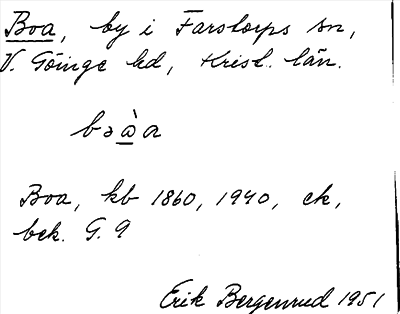 Boa, by i Farstorps sn,
V. Göinge hd, Krist. län.
bəà̱a
Boa, kb 1860, 1940, ek,
bek. G. 9
Erik Bergenrud 1951